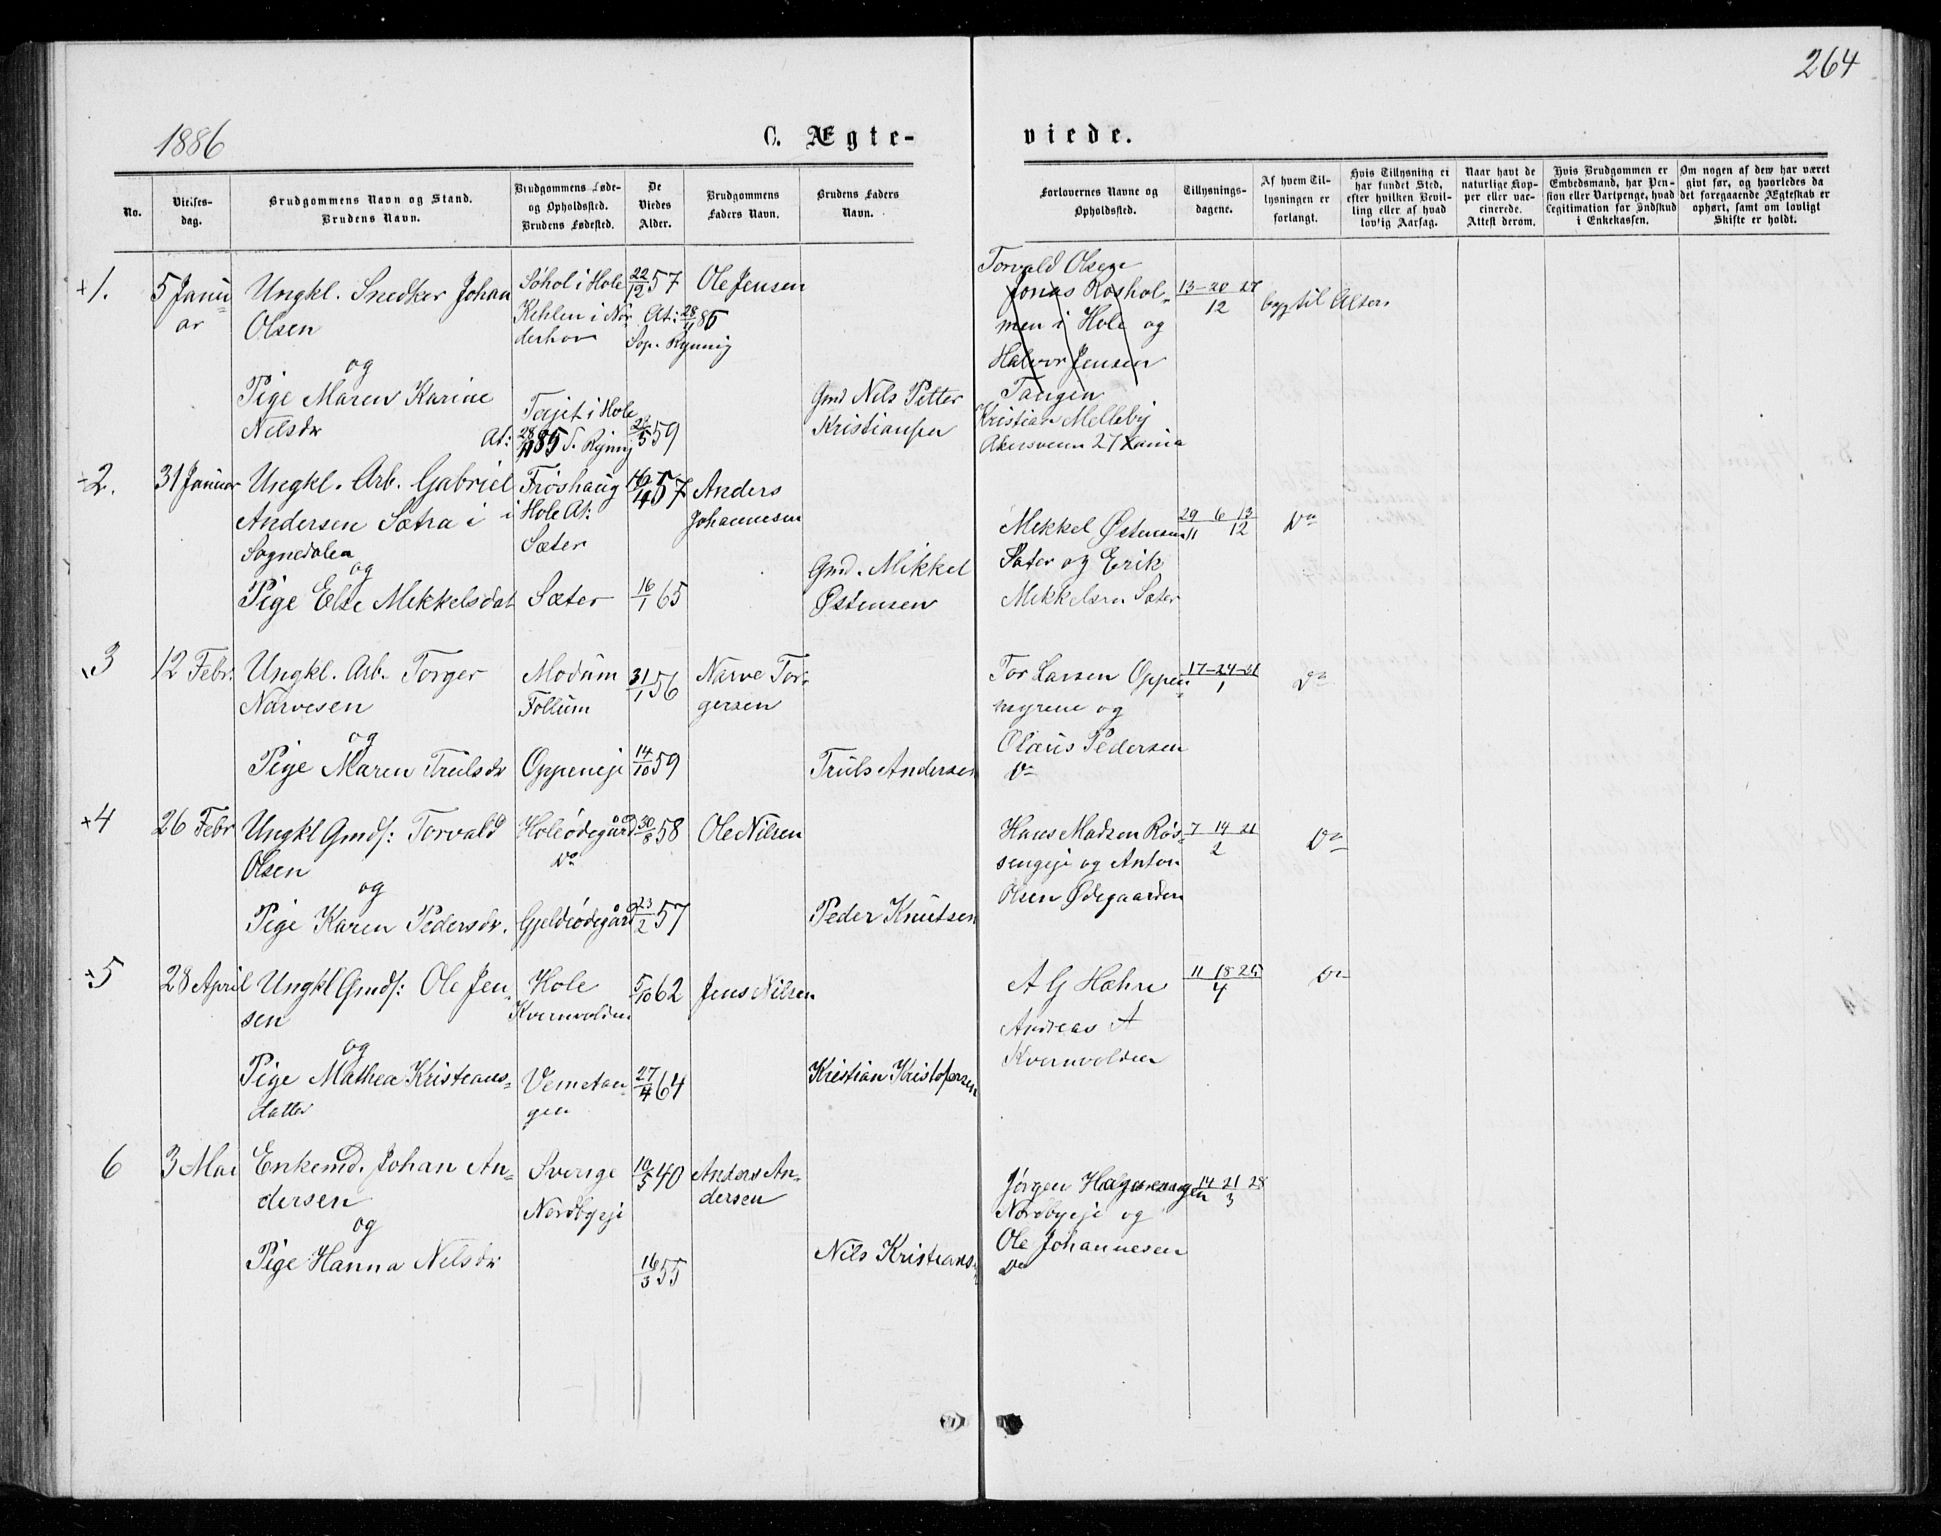 264
1886
C. Ægte-
viede.
No.
Vielses-
dag.
Brudgommens Navn og Stand.
Brudens Navn.
Brudgommens Føde-
og Opholdssted.
Brudens Fødested.
De
Viedes
Alder.
Brudgommens
Faders Navn.
Brudens Faders
Navn.
Forlovernes Navne og
Opholdssted.
Tillysnings-
dagene.
Af hvem Til-
lysningen er
forlangt.
Hvis Tillysning ei
har fundet Sted,
efter hvilken Bevil-
ling eller af hvad
lovlig Aarsag.
Naar havt de
naturlige Kop-
per eller vac-
cinerede.
Attest derom.
Hvis Brudgommen er
Embedsmand, har Pen-
sion eller Vartpenge, hvad
Legitimation for Indskud
i Enkekassen.
Om nogen af dem har været
givt før, og hvorledes da
det foregaaende Ægteskab er
ophørt, samt om lovligt
Skifte er holdt.
+1.
5 Janu
ar
Ungkl. Snedker Johan
Olsen
og
Pige Maren Karine
Nilsdr
Søhol i Hole
Kehlen i Nor
derhov
22/12 57
At: 28/11 85
Sop. Rynnig
Ole Jensen
At: 28/11 85 S. Rynnig
i Hole
22/5 59
Gmd Nils Petter
Kristiansen
Torvald Olsen
Jonas Roshol-
men i Hole og
Halvor Jensen
Tangen
Kristian Melleby
Akersveien 27
13-20 27
12
beg til Alters
2.
31 Januar
Ungkl. Arb. Gabriel
Andersen Sætra i
Sognedalen
og
Pige Else Mikkelsdat
Frøshaug
i Hole At:
Sæter
Sæter
16/4 57
16/1 65
Anders
Johannesen
Gmd. Mikkel
Østensen
Mikkel Østensen
Sæter og Erik
Mikkelsen Sæter
29 6 13
11 12
Do
3
12 Febr.
Ungkl. Arb. Torger
Narvesen
og
Pige Maren Trulsdr
Modum
Follum
Oppeneje
31/1 56
14/10 59
Narve Tor-
gersen
Truls Andersen
Tor Larsen Oppen-
myrene og
Olaus Pedersen
Do
17-24-31
1
Do
+4
26 Febr
Ungkl Gmds: Torvald
Olsen
og
Pige Karen Pedersdr.
Holeødegård
Do
Gjeldeødegård
30/8 58
23/2 57
Ole Nilsen
Peder Knutsen
Hans Madsen Røs-
sengeje og Anton
Olsen Ødegaarden
7 14 21
2
Do
+5
28 April
Ungkl Gmds: Ole Jen-
sen
og
Pige Mathea Kristians-
datter
Hole
Kvernvolden
Vemetan-
gen
5/10 62
27/4 64
Jens Nilsen
Kristian Kristofersen
A G Hæhre
Andreas A
Kvernvolden
11 18 25
4
Do
6
3 Mai
Enkemd. Johan An-
dersen
og
Pige Hanna Nilsdr
Sverige
Nordbyeje
10/5 40
16/3 55
Anders An-
dersen
Nils Kristians-
Jørgen Hagenengen
Nordbyeje og
Ole Johannesen
Do
14 21 28
3